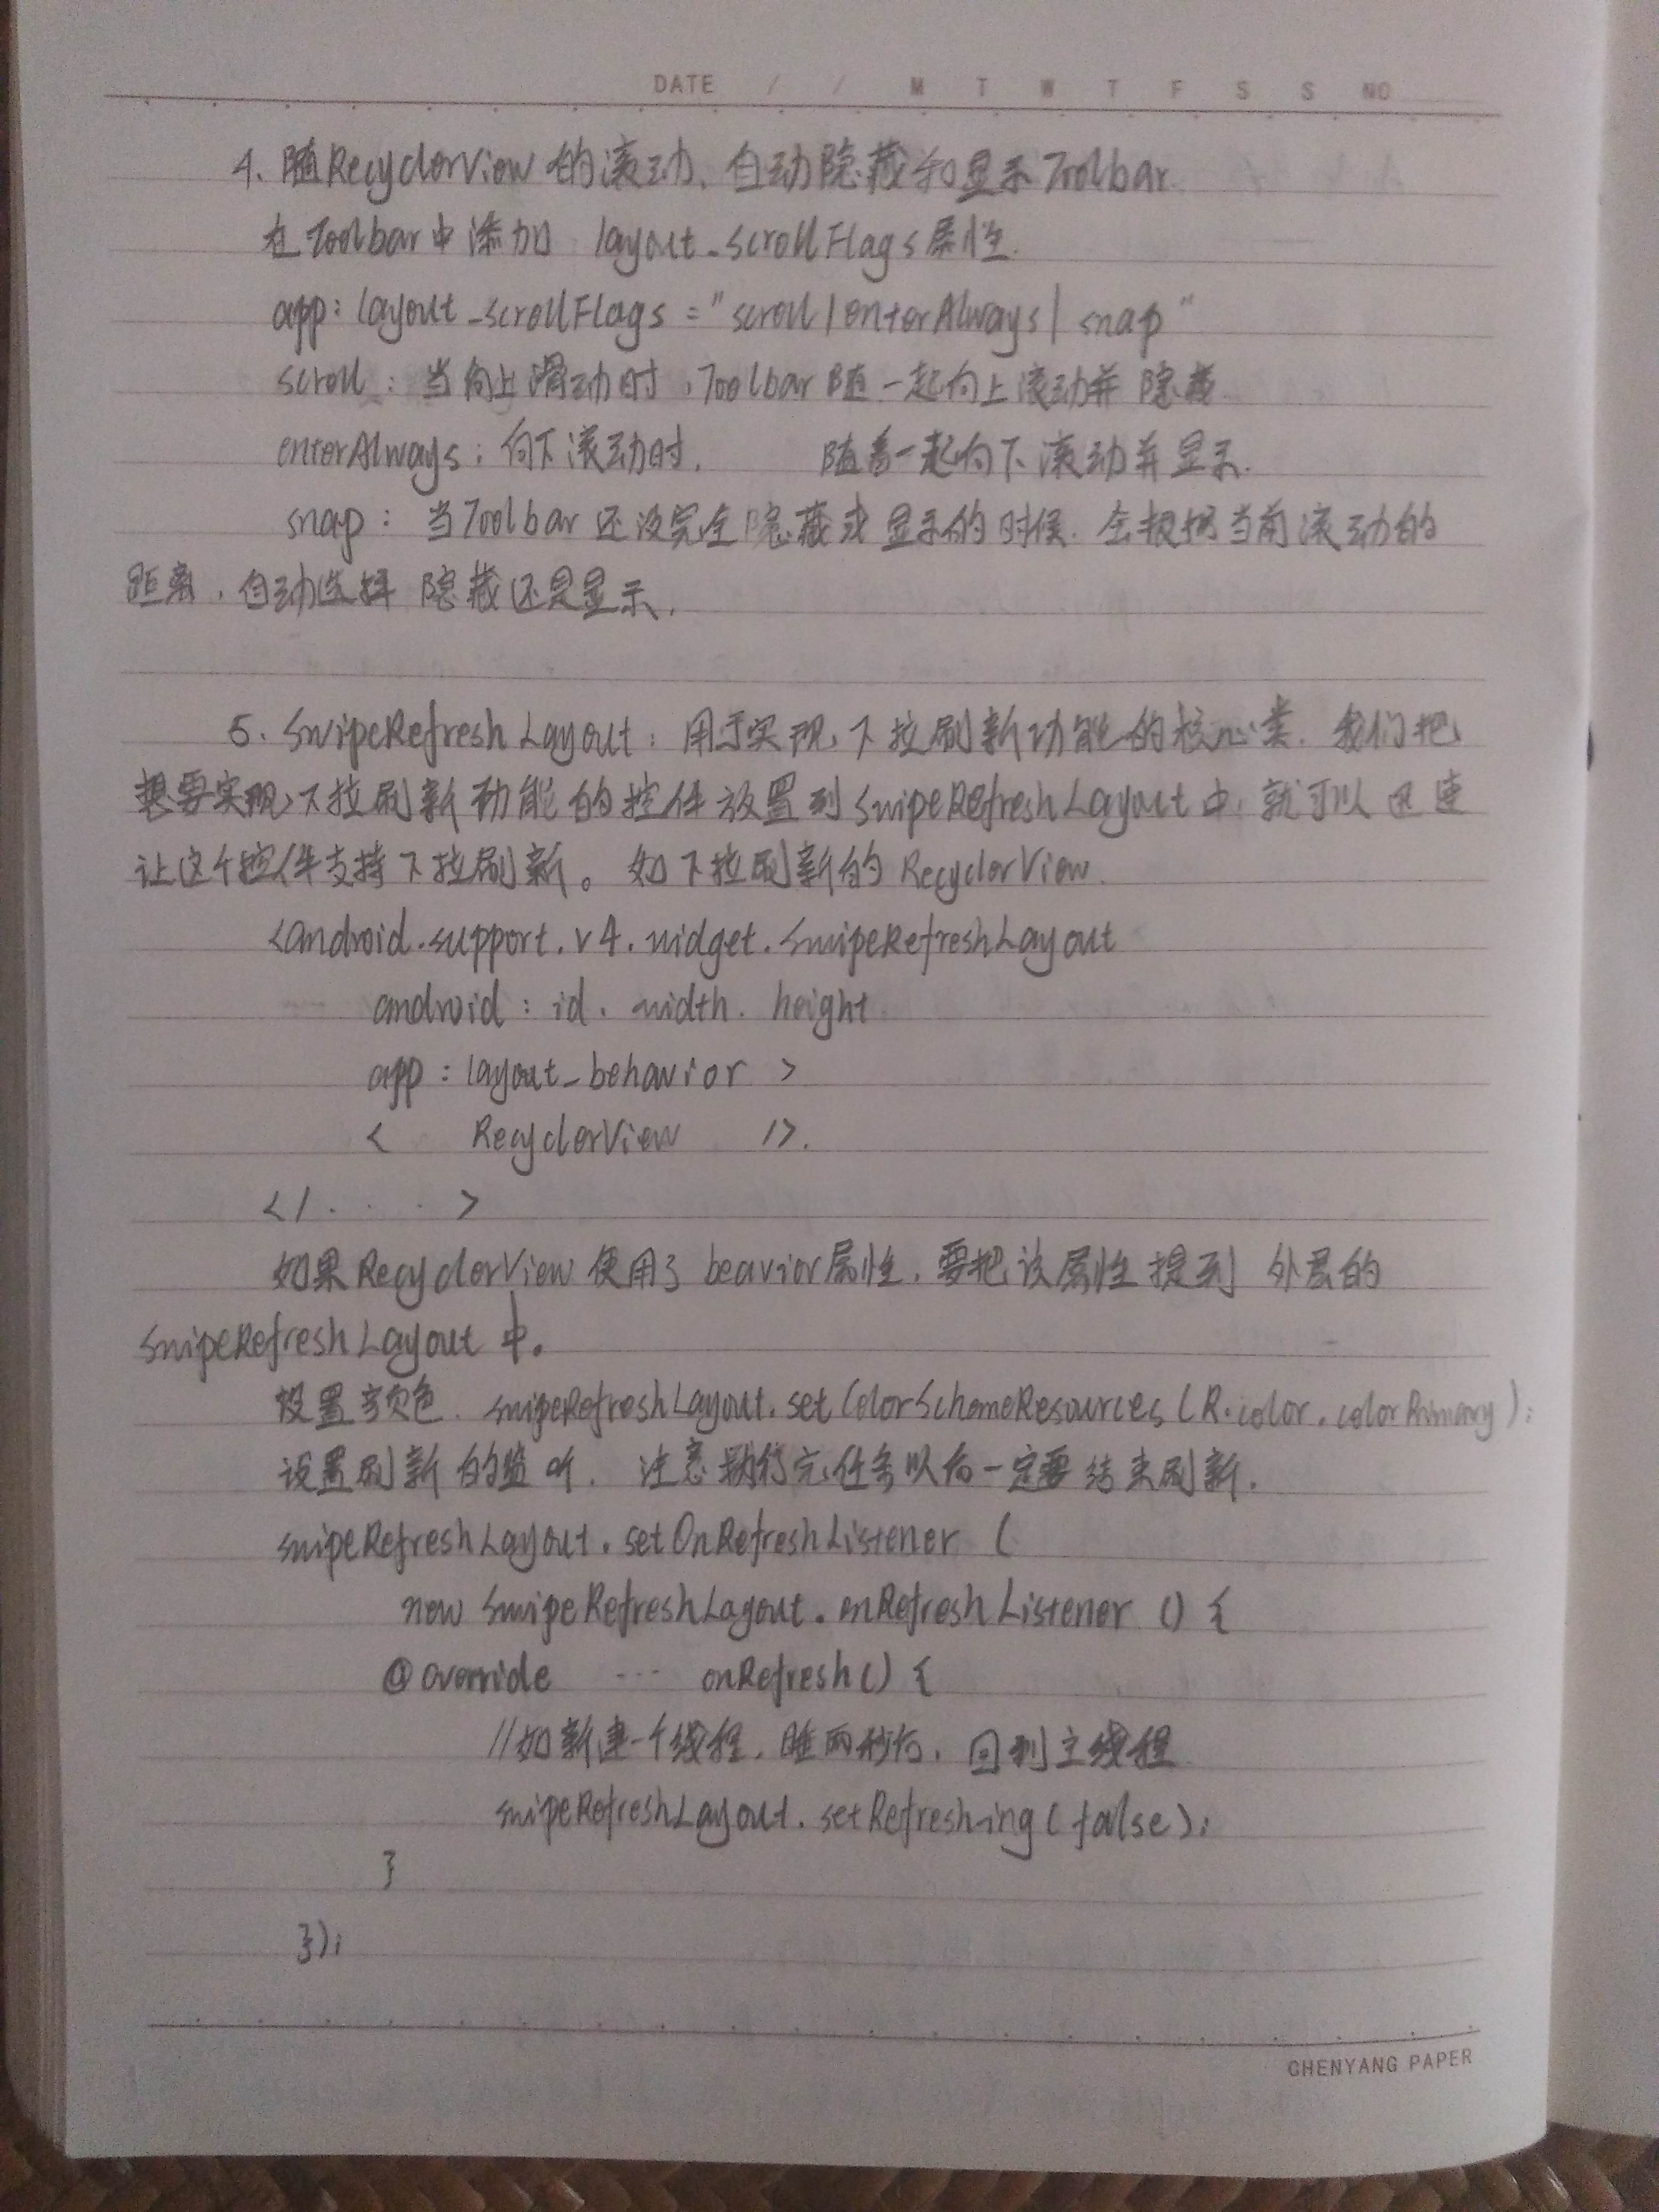 DATE / / M T W T F S S NO
4. 随RecyclerView 的滚动, 自动隐藏和显示Toolbar
在Toolbar中添加 layout_scrollFlags属性.
app:layout_scrollFlags="scroll|enterAlways|snap"
scroll: 当向上滑动时,Toolbar随一起向上滚动并隐藏
enterAlways: 向下滚动时, 随着一起向下滚动并显示.
snap: 当Toolbar还没完全隐藏或显示的时候, 会根据当前滚动的
距离, 自动选择 隐藏还是显示.
5. SwipeRefreshLayout: 用于实现下拉刷新功能的核心类. 我们把
想要实现下拉刷新功能的控件放置到SwipeRefreshLayout中, 就可以迅速
让这个控件支持下拉刷新。如下拉刷新的RecyclerView.
<android.support.v4.widget.SwipeRefreshLayout
android:id. width. height
app:layout_behavior >
< RecyclerView />.
</ . . . >
如果RecyclerView使用了beavior属性, 要把该属性提到 外层的
SwipeRefreshLayout中.
设置颜色. swipeRefreshLayout.setColorSchemeResources(R.color.colorPrimary);
设置刷新的监听. 注意执行完任务以后一定要结束刷新.
swipeRefreshLayout.setOnRefreshListener (
new SwipeRefreshLayout.onRefreshListener () {
@override ... onRefresh() {
//如新建一个线程, 睡两秒后, 回到主线程
swipeRefreshLayout.setRefreshing(false);
}
});
CHENYANG PAPER